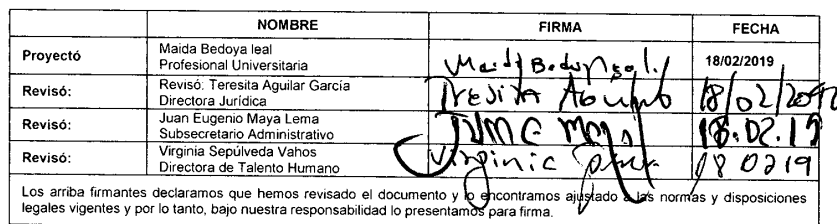 NOMBRE FIRMA FECHA
Proyectó Maida Bedoya leal
Profesional Universitaria Maida Bedoya Leal 18/02/2019
Revisó: Revisó: Teresita Aguilar García
Directora Jurídica Teresita Aguilar 18/02/2019
Revisó: Juan Eugenio Maya Lema
Subsecretario Administrativo 18.02.19
Revisó: Virginia Sepúlveda Vahos
Directora de Talento Humano Virginia 18 02 19
Los arriba firmantes declaramos que hemos revisado el documento y lo encontramos ajustado a las normas y disposiciones
legales vigentes y por lo tanto, bajo nuestra responsabilidad lo presentamos para firma.